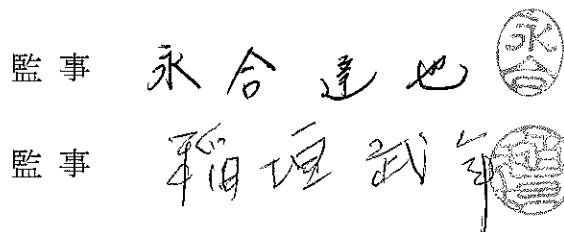 監事 永合達也 永合
監事 稲垣武年